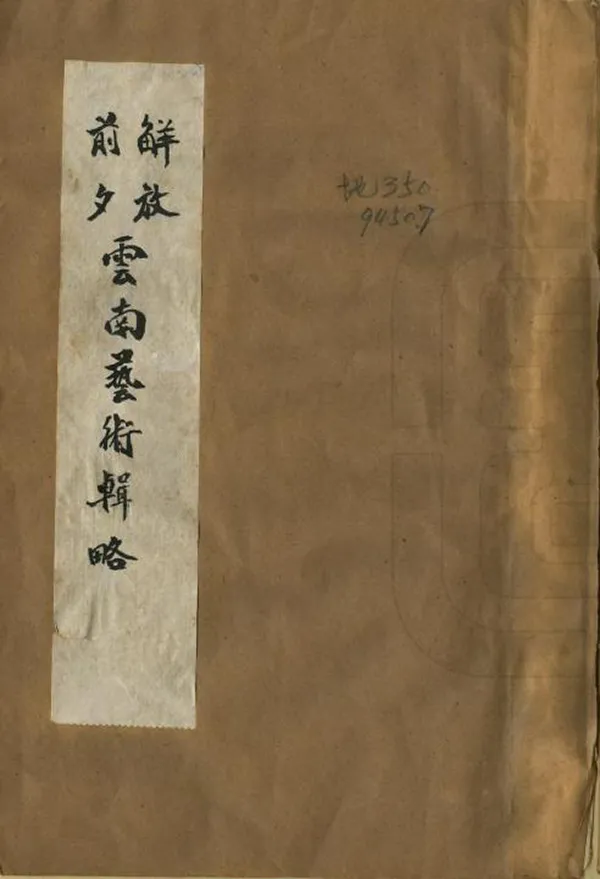 解放
前夕
雲南藝術輯略
地350
94507